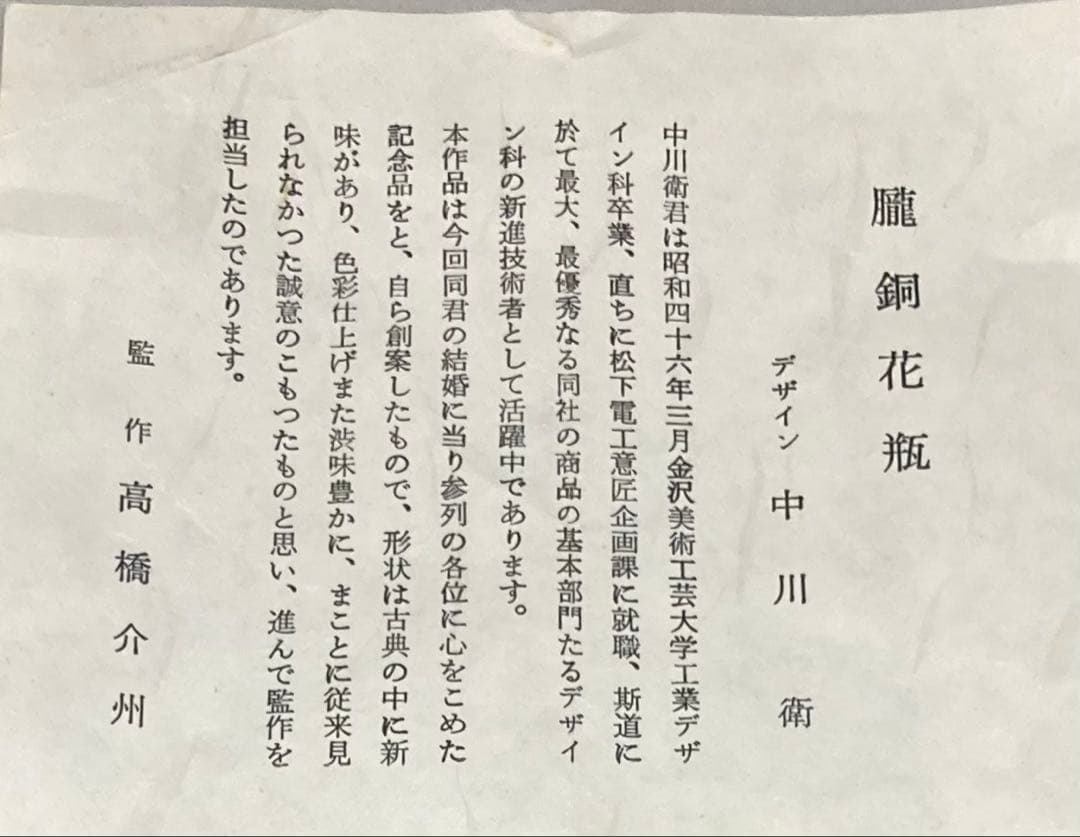 朧銅花瓶
デザイン 中川衛
中川衛君は昭和四十六年三月金沢美術工芸大学工業デザ
イン科卒業、直ちに松下電工意匠企画課に就職、斯道に
於て最大、最優秀なる同社の商品の基本部門たるデザイ
ン科の新進技術者として活躍中であります。
本作品は今回同君の結婚に当り参列の各位に心をこめた
記念品をと、自ら創案したもので、形状は古典の中に新
味があり、色彩仕上げまた渋味豊かに、まことに従来見
られなかつた誠意のこもつたものと思い、進んで監作を
担当したのであります。
監作 高橋介州